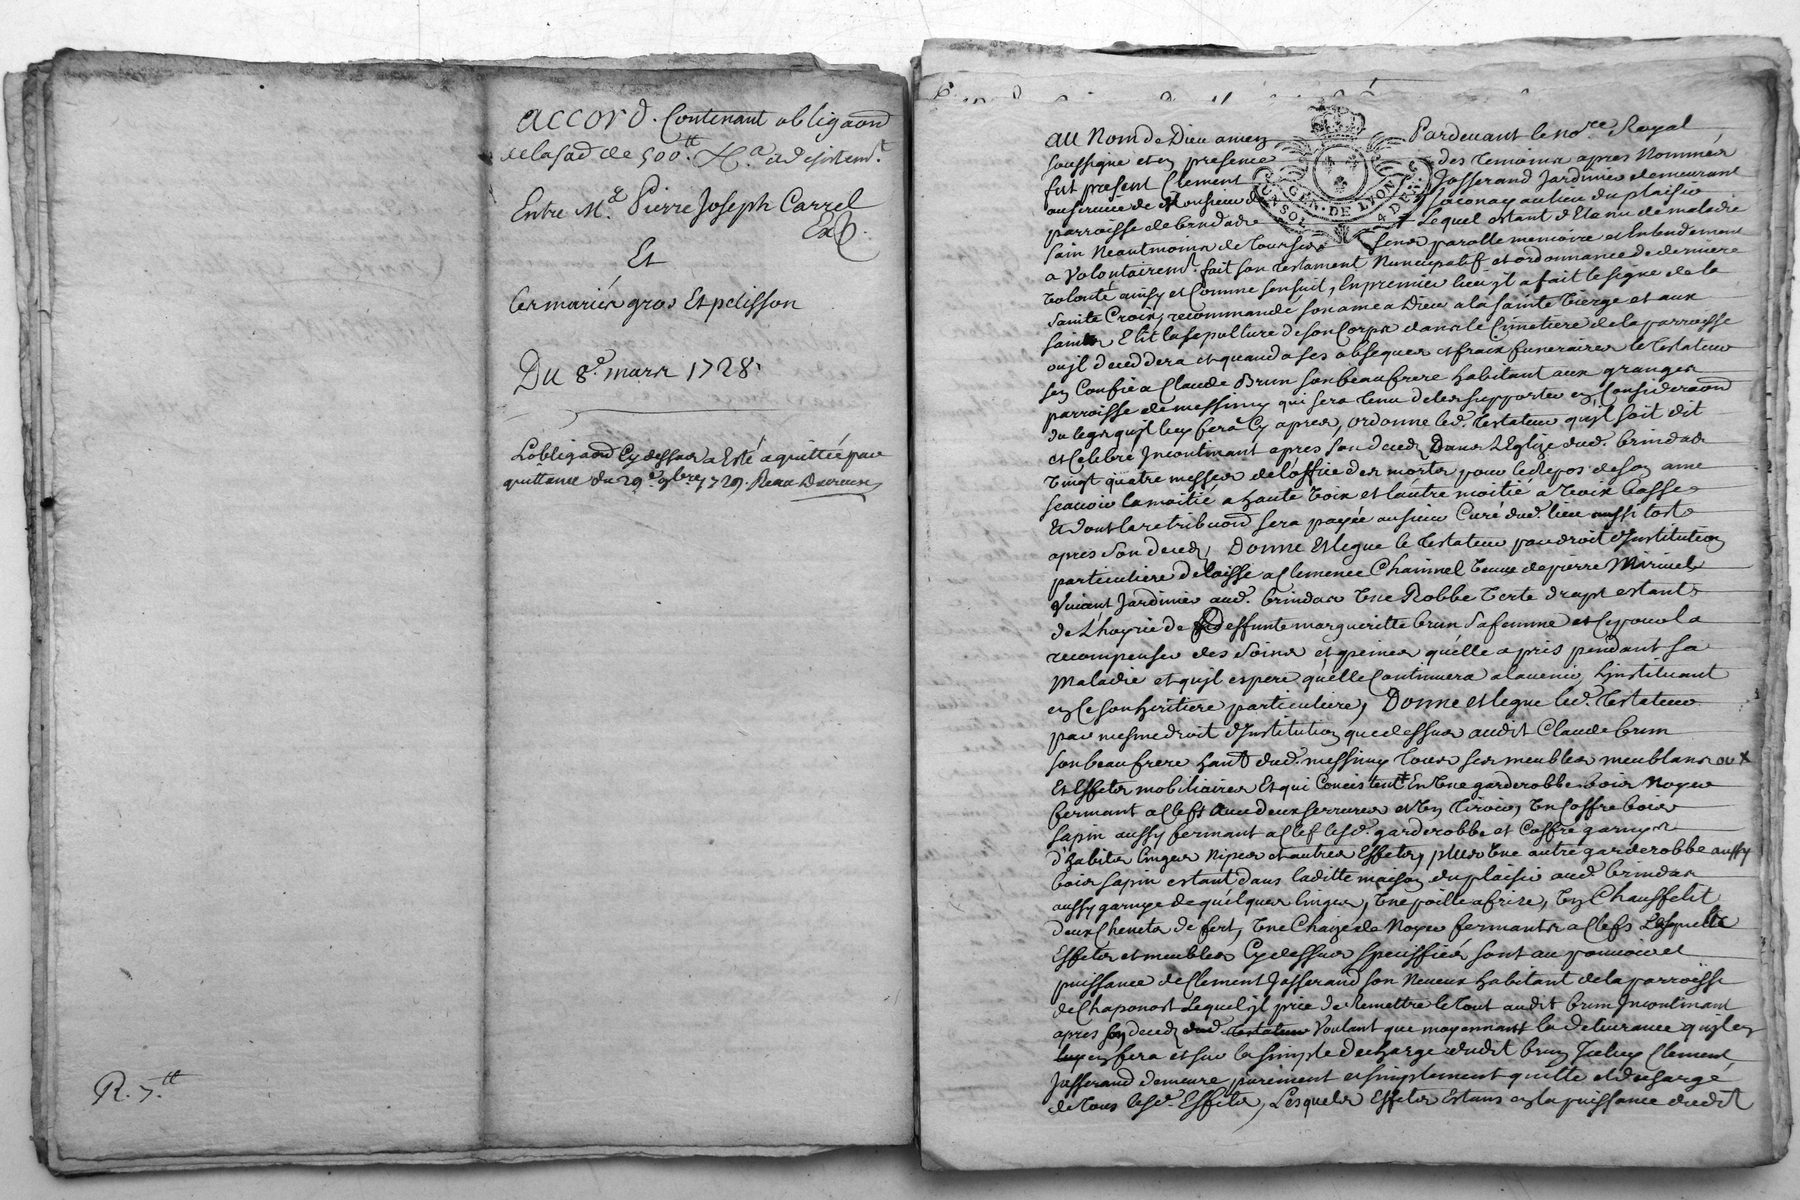 accord. Contenant obligaõn
de la sad de 500.tt &.a et desistem.t
Entre M.e Pierre Joseph Carrel
Et
les mariés gros Et pelisson
Du 8.e mars 1728.
L'obligaõn Cy dessus a Esté aquittée par
quittance du 29.e 9bre 1729.
R. 7.tt
GEN. DE LYON
4 DEN.
au Nom de Dieu amen Pardevant le no.re Royal
soussigné et en presence des temoins apres Nommés
fut present Clement Josserand Jardinier demeurant
au service de Monsieur de au lieu du plaisir
parroisse de brindas Lequel estant d'Etenu de maladie
sain Neautmoins de tous ses sens parolle memoire et Entendement
a Volontairem.t fait son testament Nuncupatif et ordonnance de derniere
Volonté ainsy et Comme s'ensuit, En premier lieu jl a fait le signe de la
sainte Croix, recommandé son ame a Dieu a la sainte Vierge et aux
saints Elit la sepulture de son Corps dans le Cimetiere de la parroisse
ou jl deceddera et quand a ses obseques et fraix funeraires le testateur
s'en Confie a Claude Brun son beau frere habitant aux granges
parroisse de messimy qui sera tenu de les supporter en Consideraõn
du legs qu'jl luy fera Cy apres, ordonne led. testateur qu'jl soit dit
et Celebré Incontinant apres son deceds Dans L'Eglize dud. brindas
Vingt quatre messes de l'office des morts pour le repos de son ame
scavoir la moitié a haute Voix et l'autre moitié a Voix basse
Et dont la retribuõn sera payée au sieur Curé dud. lieu aussi tost
apres son deceds, Donne et legue le testateur par droit d'Institution
particuliere delaisse a Clemence Chammel Veuve de pierre Miriuel
Vivant Jardinier aud. brindas Une Robbe Verte drapt estant
de L'hoyrie de deffunte margueritte brun sa femme et Ce pour la
recompenser des soins et peines qu'elle a pris pendant sa
Maladie et qu'jl espere qu'elle Continuera a l'avenir, l'instituant
en Ce son hiritiere particuliere, Donne et legue led. testateur
par mesme droit d'Institution que dessus audit Claude brun
son beau frere han.t dud. messimy tous ses meubles meublans ou X
Et Effets mobiliaires Et qui Concistent En Une garderobbe bois Noyer
fermant a Clefs avec deux serrures et Un tiroir, Un Coffre bois
sapin aussy fermant a Clef lesd. garderobbe et Coffre garnys
d'habits linges Nipes et autres Effets, plus Une autre garderobbe aussy
bois sapin estant dans laditte maison du plaisir aud. brindas
aussy garnye de quelques linges, Une poille a frire, Un Chauffelit
deux Chenets de fert, Une Chaize de Noyer fermants a Clefs Lesquelle
Effets et meubles Cy dessus speciffiés sont au pouvoir et
puissance de Clement Josserand son Neveux habitant de la parroisse
de Chaponost Lequel jl prie de Remettre le tout audit brun Incontinant
apres son deceds dud. testateur Voulant que moyennant la delivrance qu'jl en
luy en fera et sur la simple decharge dudit brun Jceluy Clement
Josserand demeure purement et simplement quitte et dechargé
de tous lesd. Effets, Lesquels Effets Estans en la puissance dudit